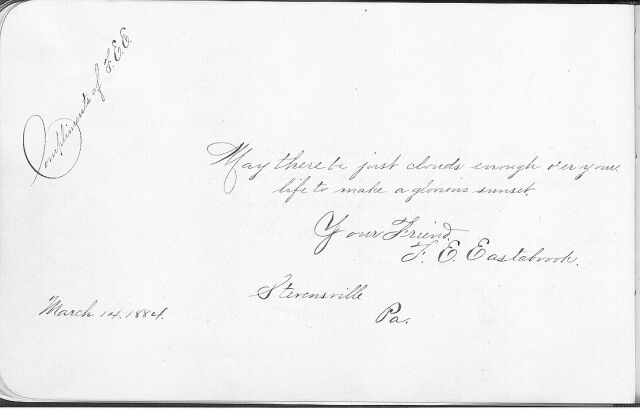 Compliments of F. E. E.
May there be just clouds enough o'er your
life to make a glorious sunset.
Your Friend,
F. E. Eastabrook.
Stevensville
Pa.
March 14, 1884.